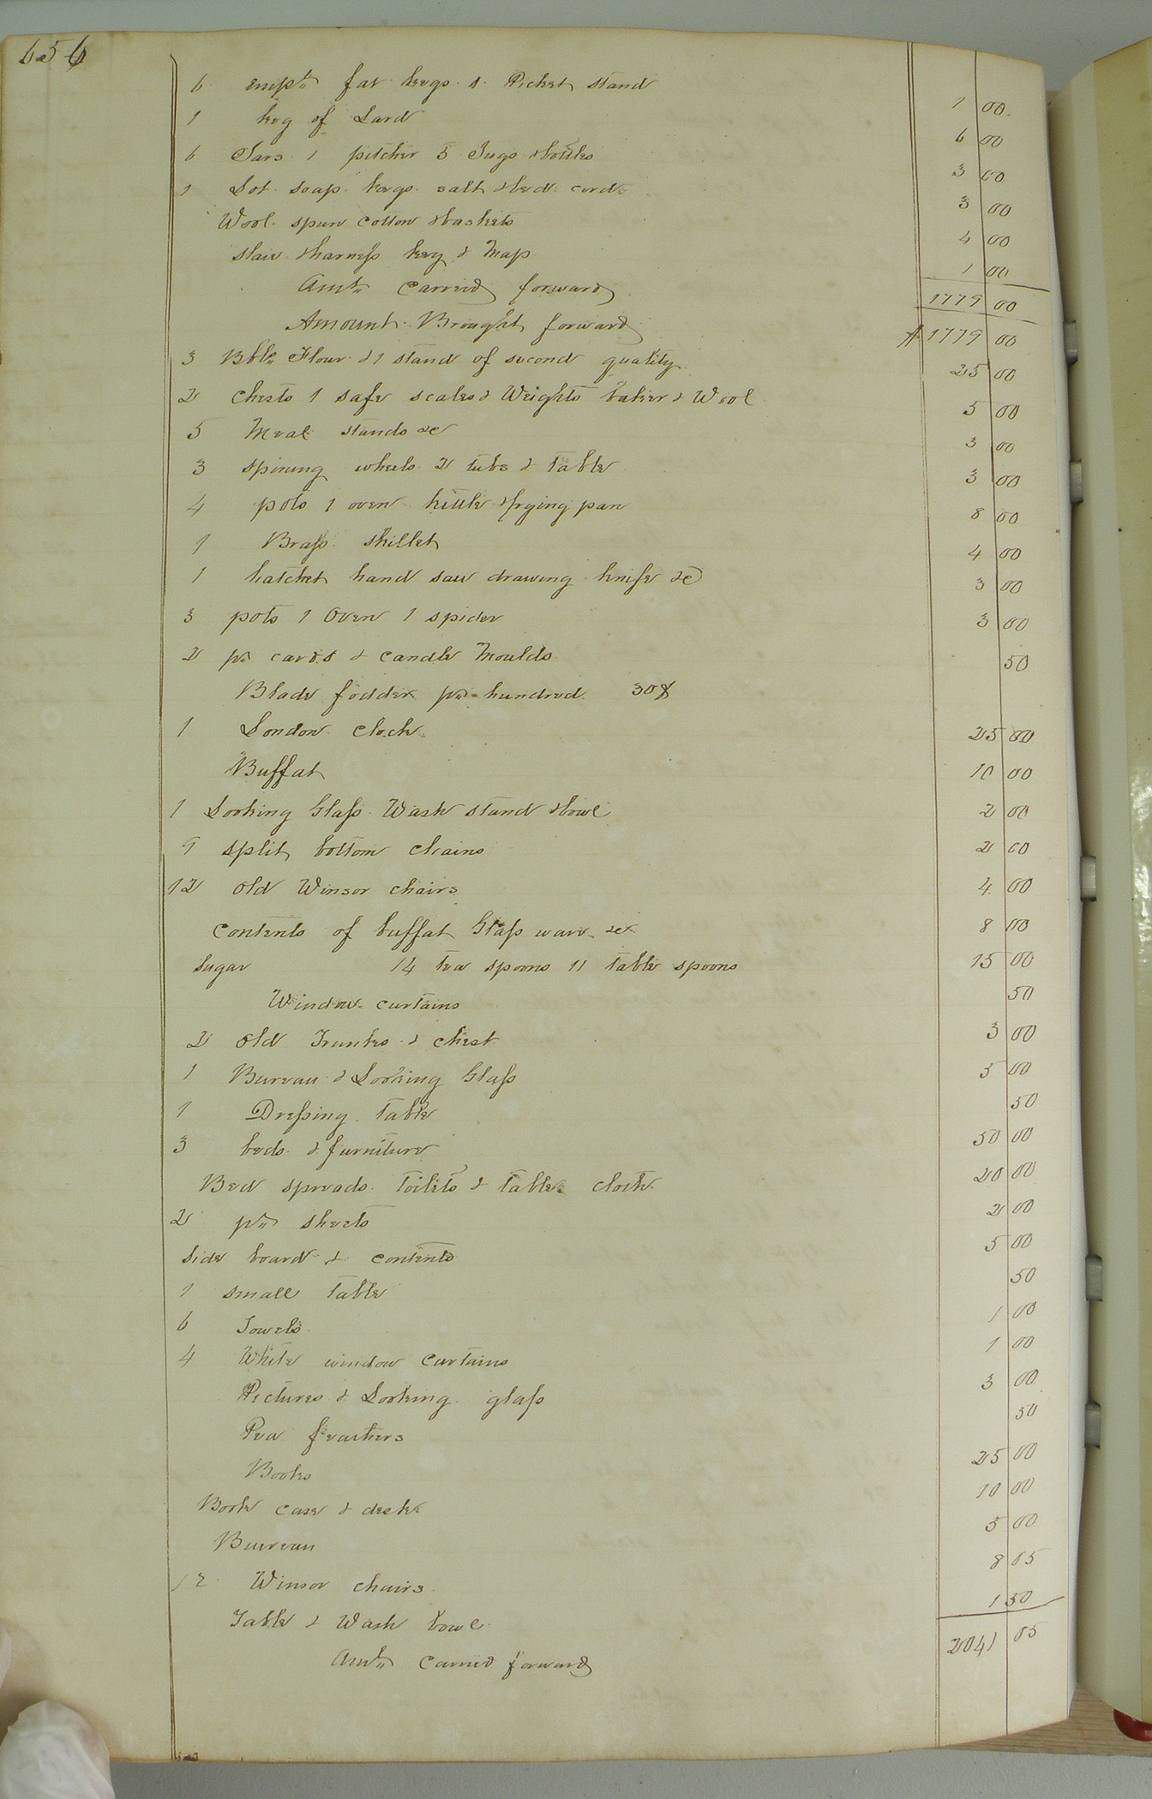 656
6 empty fat kegs & Picket stand 1 00
1 keg of Lard 6 00
6 Jars 1 pitcher 5 Jugs & bottles 3 00
1 Lot soap kegs salt & bed cords 3 00
Wool spun cotton & baskets 4 00
Stair & harness keg & Map 1 00
Amt. Carried forward 1779 00
Amount Brought forward $1779 00
3 Bbls Flour & 1 stand of second quality 25 00
2 Chests 1 safe scales & Weights & Wool 5 00
5 Meal stands &c 3 00
3 spining wheels 2 tubs & table 3 00
4 pots 1 oven kittle & frying pan 8 00
1 Brass skillet 4 00
1 hatchet hand saw drawing knife &c 3 00
3 pots 1 Oven 1 spider 3 00
2 pr cards & candle Moulds 50
Blade fodder pr hundred 30¢
1 London Clock 25 00
Buffat 10 00
1 Looking Glass Wash stand & bowl 2 00
9 split bottom chairs 2 00
12 old Winsor chairs 4 00
Contents of buffat Glass ware &c 8 00
Sugar 14 tea spoons 11 table spoons 15 00
Window curtains 50
2 old Trunks & chest 3 00
1 Bureau & Looking Glass 5 00
1 Dressing table 50
3 beds & furniture 50 00
Bed spreads toilets & table cloth 20 00
2 pr sheets 2 00
Side board & contents 5 00
1 small table 50
6 Towels 1 00
4 White window curtains 1 00
Pictures & Looking glass 3 00
Pea feathers 50
Books 25 00
Book case & desk 10 00
Bureau 5 00
12 Winsor chairs 8 05
Table & Wash bowl 1 50
Amt. Carried forward 2041 05